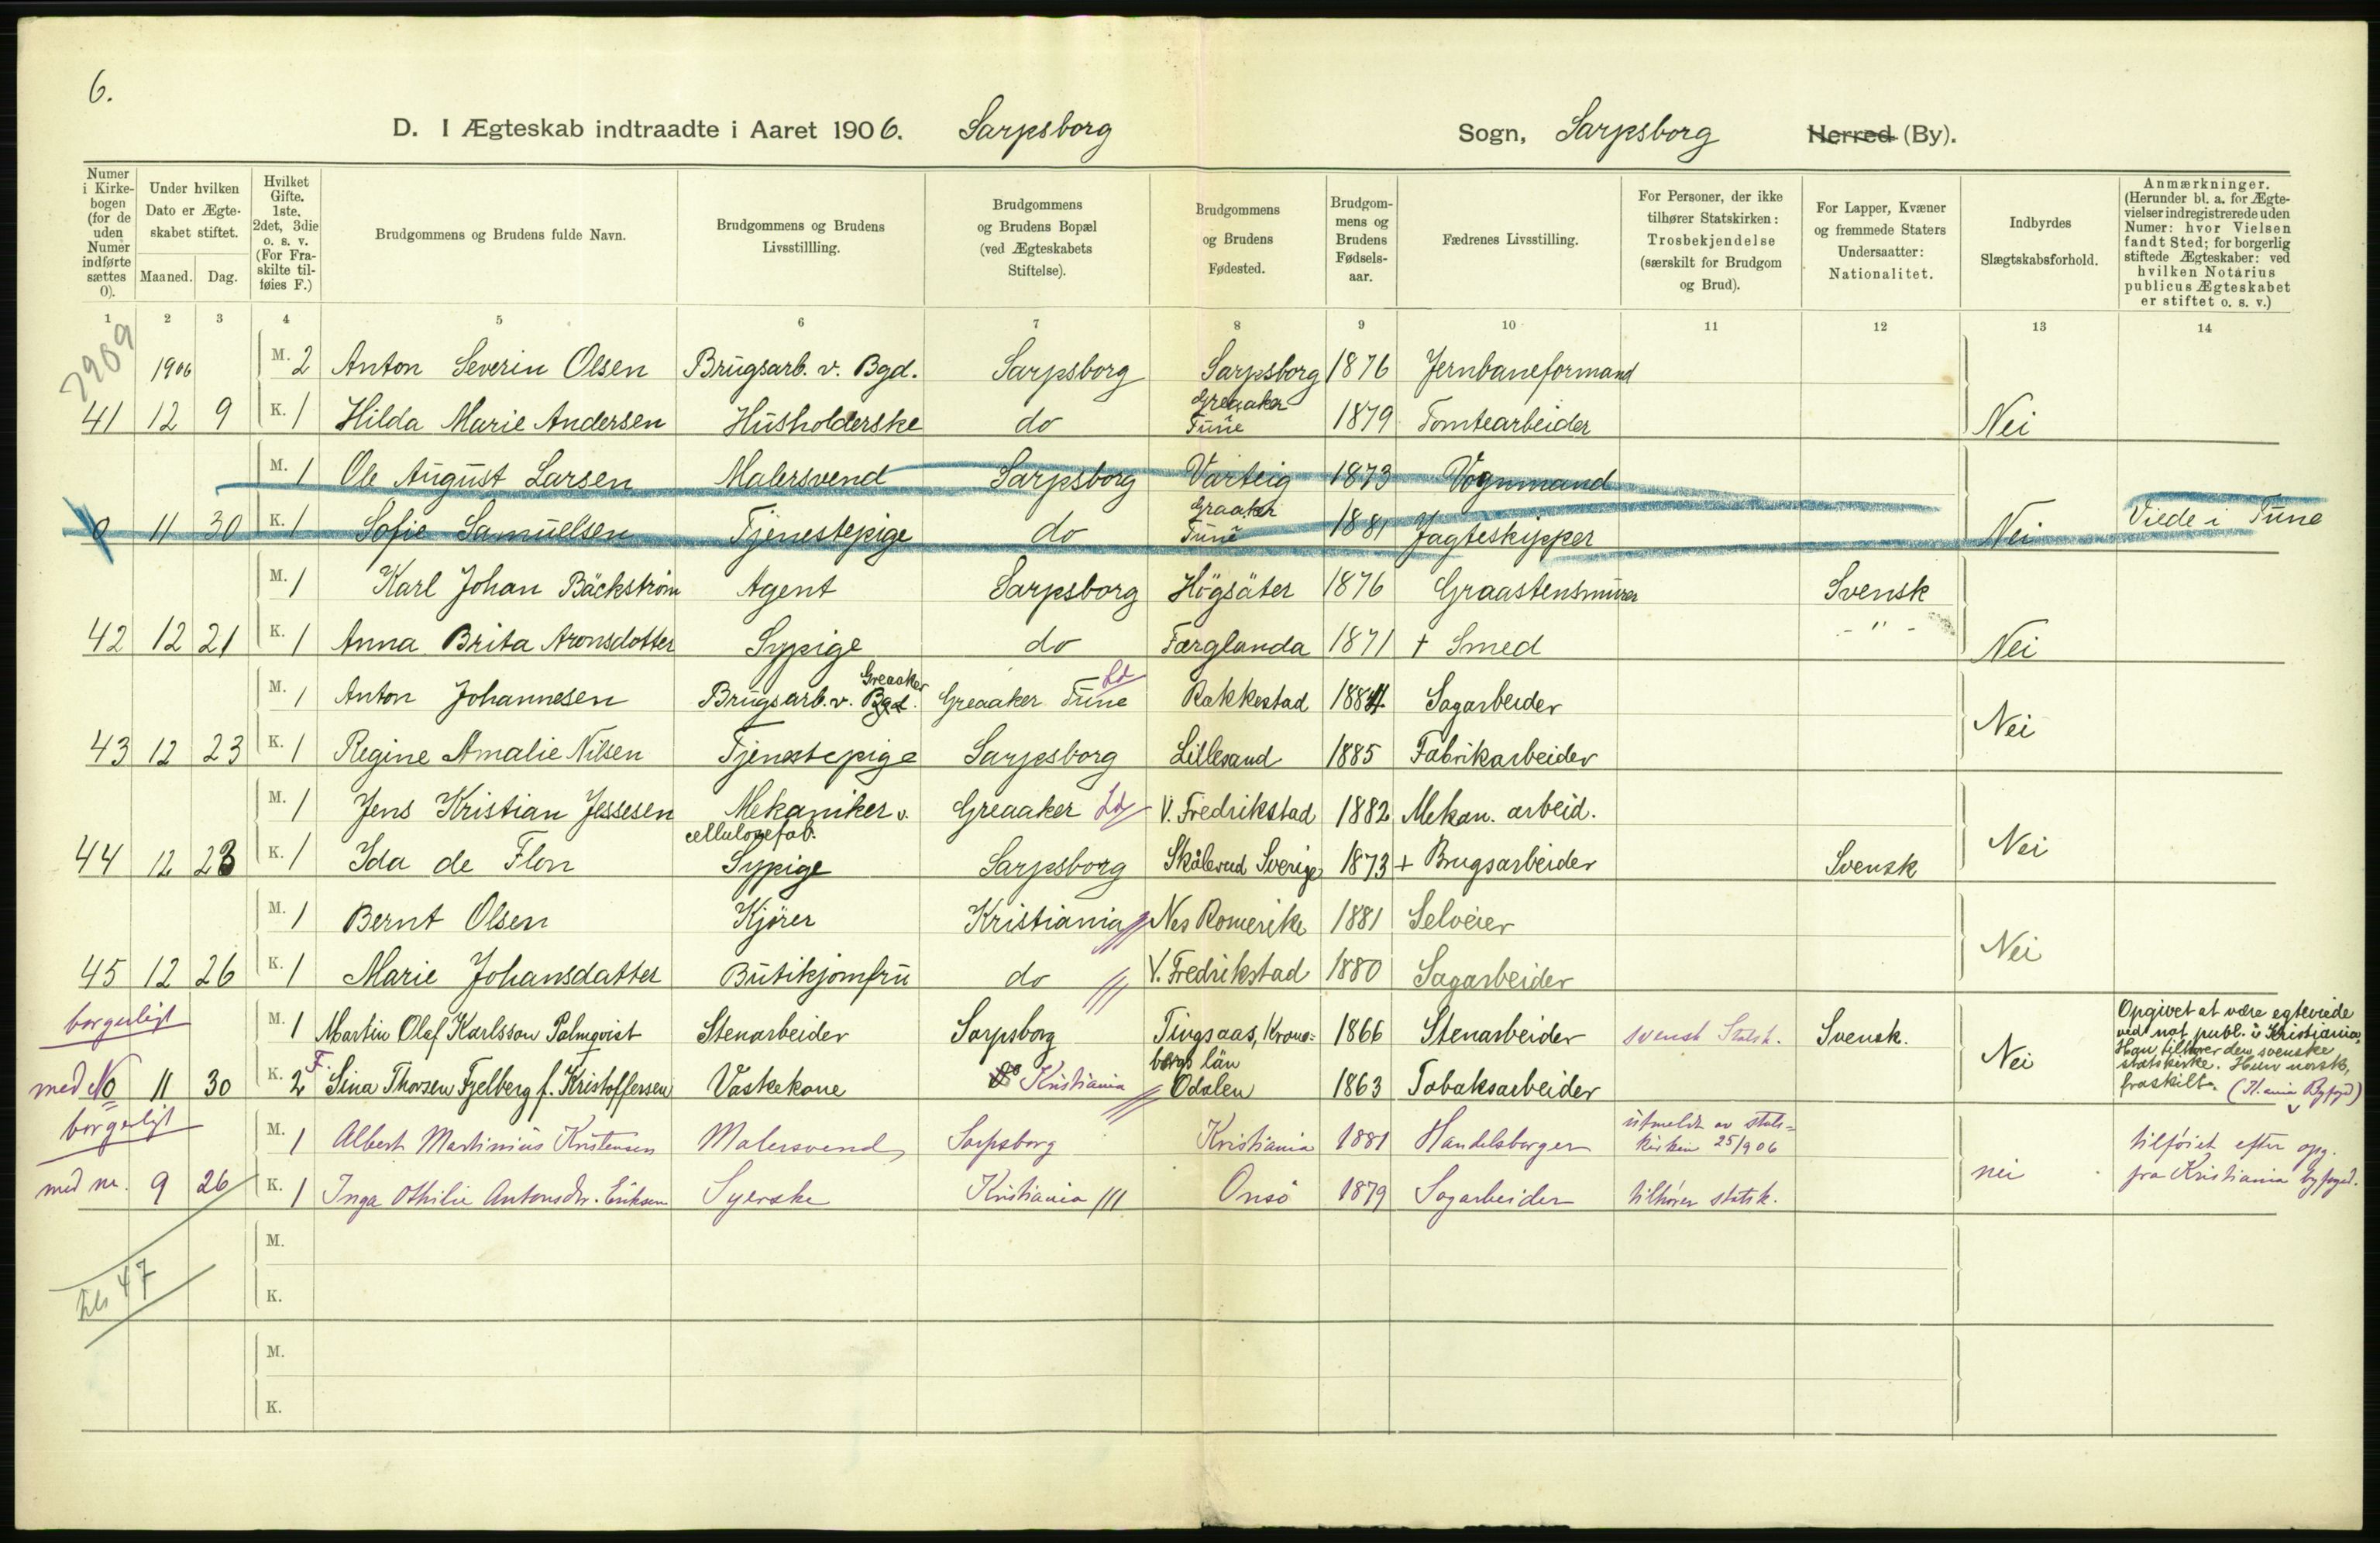 6.
D. I Ægteskab indtraadte i Aaret 1906. Sarpsborg Sogn, Sarpsborg Herred (By).
Numer i Kirkebogen (for de uden Numer indførte sættes 0).
Under hvilken Dato er Ægteskabet stiftet.
Maaned. Dag.
Hvilket Gifte. 1ste, 2det, 3die o. s. v. (For Fraskilte tilføies F.)
Brudgommens og Brudens fulde Navn.
Brudgommens og Brudens Livsstillling.
Brudgommens og Brudens Bopæl (ved Ægteskabets Stiftelse).
Brudgommens og Brudens Fødested.
Brudgommens og Brudens Fødselsaar.
Fædrenes Livsstilling.
For Personer, der ikke tilhører Statskirken: Trosbekjendelse (særskilt for Brudgom og Brud).
For Lapper, Kvæner og fremmede Staters Undersaatter: Nationalitet.
Indbyrdes Slægtskabsforhold.
Anmærkninger. (Herunder bl. a. for Ægtevielser indregistrerede uden Numer: hvor Vielsen fandt Sted; for borgerlig stiftede Ægteskaber: ved hvilken Notarius publicus Ægteskabet er stiftet o. s. v.)
1 2 3 4 5 6 7 8 9 10 11 12 13 14
2989
1906 M. 2 Anton Severin Olsen Brugsarb. v. Bgd. Sarpsborg Sarpsborg 1876 Jernbaneformand
41 12 9 K. 1 Hilda Marie Andersen Husholderske do Greaaker Tune 1879 Tomtearbeider Nei
M. 1 Ole August Larsen Malersvend Sarpsborg Varteig 1873 Vognmand
0 11 30 K. 1 Sofie Samuelsen Tjenestepige do Graaker Tune 1881 Jagteskipper Nei Viede i Tune
M. 1 Karl Johan Bäckström Agent Sarpsborg Högsäter 1876 Graastensmurer Svensk
42 12 21 K. 1 Anna Brita Aronsdotter Sypige do Færglanda 1871 + Smed - " - Nei
M. 1 Anton Johannesen Brugsarb. v. Bgd. Greaaker Greaaker Tune Ld Rakkestad 1884 Sagarbeider
43 12 23 K. 1 Regine Amalie Nilsen Tjenestepige Sarpsborg Lillesand 1885 Fabrikarbeider Nei
M. 1 Jens Kristian Jessesen Mekaniker v. cellulosefab. Greaaker Ld V. Fredrikstad 1882 Mekan. arbeid.
44 12 23 K. 1 Ida de Flon Sypige Sarpsborg Skålerud Sverige 1873 + Brugsarbeider Svensk Nei
M. 1 Bernt Olsen Kjörer Kristiania Nes Romerike 1881 Selveier
45 12 26 K. 1 Marie Johansdatter Butikjomfru do V. Fredrikstad 1880 Sagarbeider Nei
borgerligt M. 1 Martin Olaf Karlsson Palmqvist Stenarbeider Sarpsborg Tingsaas, Kronobergs län 1866 Stenarbeider svensk Statsk. Svensk.
med No 11 30 K. 2 F. Sina Thorsen Fjelberg f. Kristoffersen Vaskekone do Kristiania Odalen 1863 Tobaksarbeider Nei
Opgivet at være egteviede
ved not. publ. i Kristiania.
Han tilhører den svenske
statskirke. Hun norsk,
fraskilt. (K.ania Byfogd)
borgerligt M. 1 Albert Martinius Kristensen Malersvend Sarpsborg Kristiania 1881 Handelsborger utmeldt av statskirken 25/9 06
med nr. 9 26 K. 1 Inga Othilie Antonsdtr. Eriksen Syerske Kristiania Onsö 1879 Sagarbeider tilhører statsk. nei
tilföiet efter opg.
fra Kristiania byfoged.
M.
K.
47
M.
K.